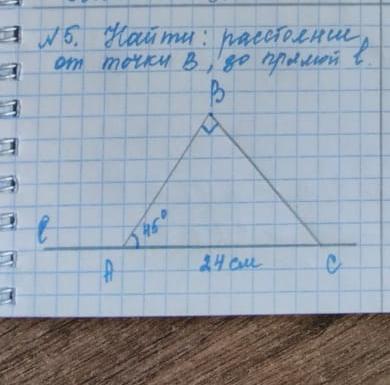 №5. Найти: расстояние
от точки В, до прямой ℓ.
В
45°
ℓ
А
24 см
С